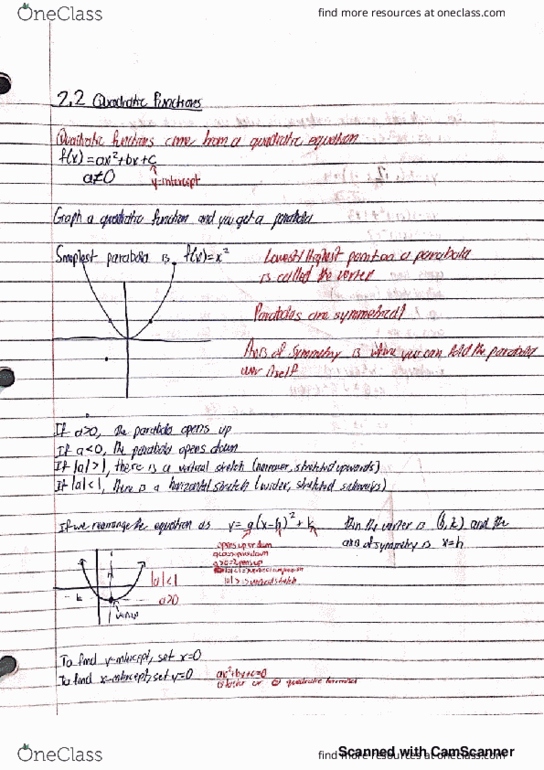 OneClass
find more resources at oneclass.com
2.2 Quadratic Functions
Quadratic functions come from a quadratic equation
f(x) = ax²+bx+c
a≠0
y-intercept
Graph a quadratic function and you get a parabola
Smaplest parabola is f(x)=x²
Lowest/Highest point on a parabola
is called the vertex
Parabolas are symmetrical!
Axis of Symmetry is where you can fold the parabola
over itself
If a>0, the parabola opens up
If a<0, the parabola opens down
If |a|>1, there is a vertical stretch (narrower, stretched upwards)
If |a|<1, there is a horizontal stretch (wider, stretched sideways)
If we rearrange the equation as y = a(x-h)² + k then the vertex is (h,k) and the
axis of symmetry is x=h
opens up or down
|a|<1
a>0
|a|>1 vertical stretch
k
vertex
To find y-intercept, set x=0
To find x-intercept, set y=0
ax²+bx+c=0
factor or quadratic formula
OneClass
find more resources at oneclass.com
Scanned with CamScanner